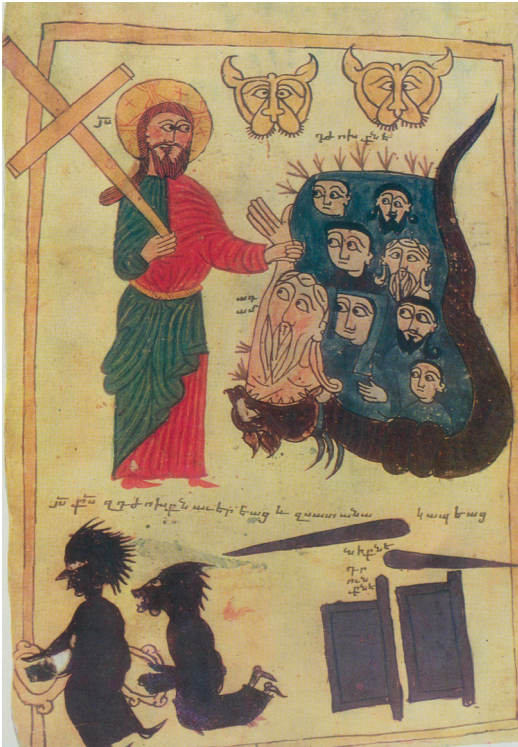 յս
դժոխ քնե
ադ
ամ
յս քս զդժոխքն աւերեաց և զսատանա կապեաց
դր
ուն
քնե